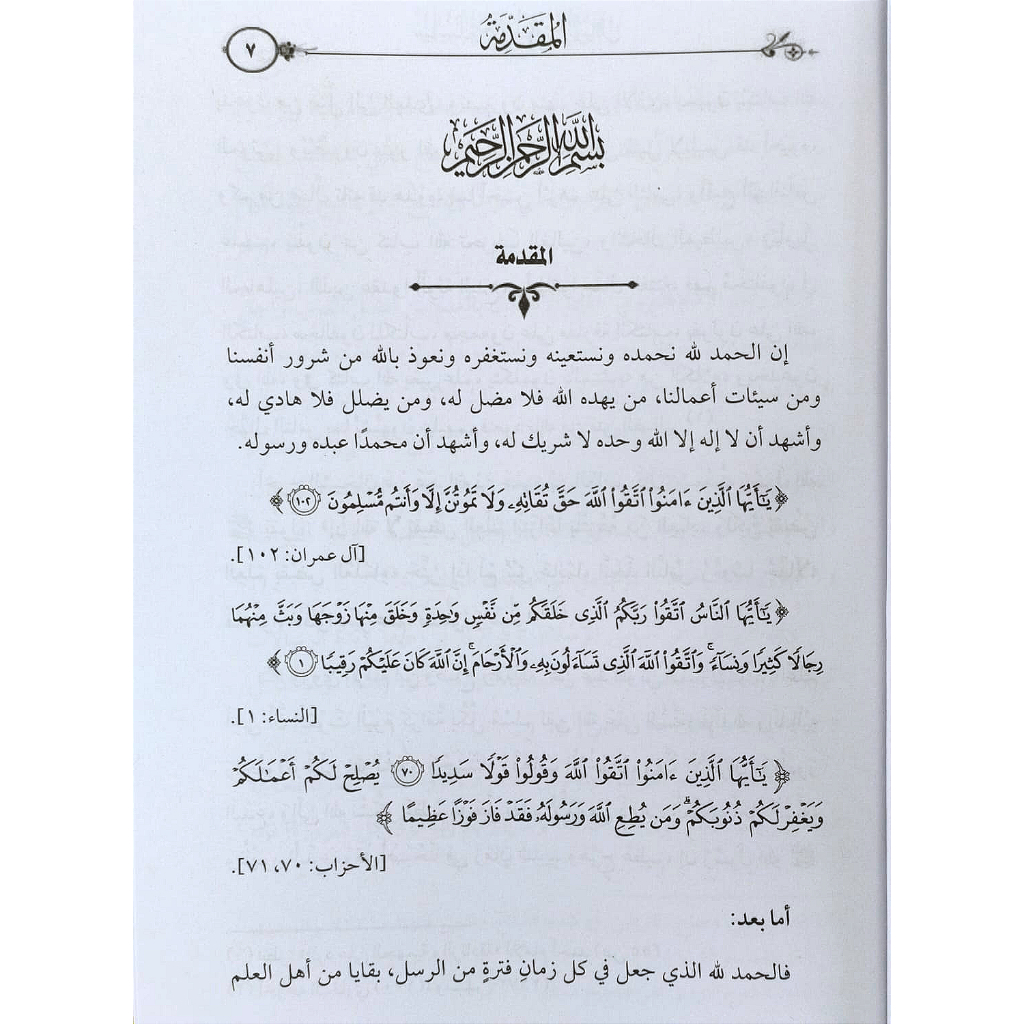 المُقَدِّمَة
٧
بِسْمِ اللَّهِ الرَّحْمَنِ الرَّحِيمِ
المقدمة
إن الحمد لله نحمده ونستعينه ونستغفره ونعوذ بالله من شرور أنفسنا
ومن سيئات أعمالنا، من يهده الله فلا مضل له، ومن يضلل فلا هادي له،
وأشهد أن لا إله إلا الله وحده لا شريك له، وأشهد أن محمدًا عبده ورسوله.
﴿ يَٰٓأَيُّهَا ٱلَّذِينَ ءَامَنُوا۟ ٱتَّقُوا۟ ٱللَّهَ حَقَّ تُقَاتِهِۦ وَلَا تَمُوتُنَّ إِلَّا وَأَنتُم مُّسْلِمُونَ ١٠٢ ﴾
[آل عمران: ١٠٢].
﴿ يَٰٓأَيُّهَا ٱلنَّاسُ ٱتَّقُوا۟ رَبَّكُمُ ٱلَّذِى خَلَقَكُم مِّن نَّفْسٍ وَٰحِدَةٍ وَخَلَقَ مِنْهَا زَوْجَهَا وَبَثَّ مِنْهُمَا
رِجَالًا كَثِيرًا وَنِسَآءً ۚ وَٱتَّقُوا۟ ٱللَّهَ ٱلَّذِى تَسَآءَلُونَ بِهِۦ وَٱلْأَرْحَامَ ۚ إِنَّ ٱللَّهَ كَانَ عَلَيْكُمْ رَقِيبًا ١ ﴾
[النساء: ١].
﴿ يَٰٓأَيُّهَا ٱلَّذِينَ ءَامَنُوا۟ ٱتَّقُوا۟ ٱللَّهَ وَقُولُوا۟ قَوْلًا سَدِيدًا ٧٠ يُصْلِحْ لَكُمْ أَعْمَٰلَكُمْ
وَيَغْفِرْ لَكُمْ ذُنُوبَكُمْ ۗ وَمَن يُطِعِ ٱللَّهَ وَرَسُولَهُۥ فَقَدْ فَازَ فَوْزًا عَظِيمًا ﴾
[الأحزاب: ٧٠، ٧١].
أما بعد:
فالحمد لله الذي جعل في كل زمانِ فترةٍ من الرسل، بقايا من أهل العلم